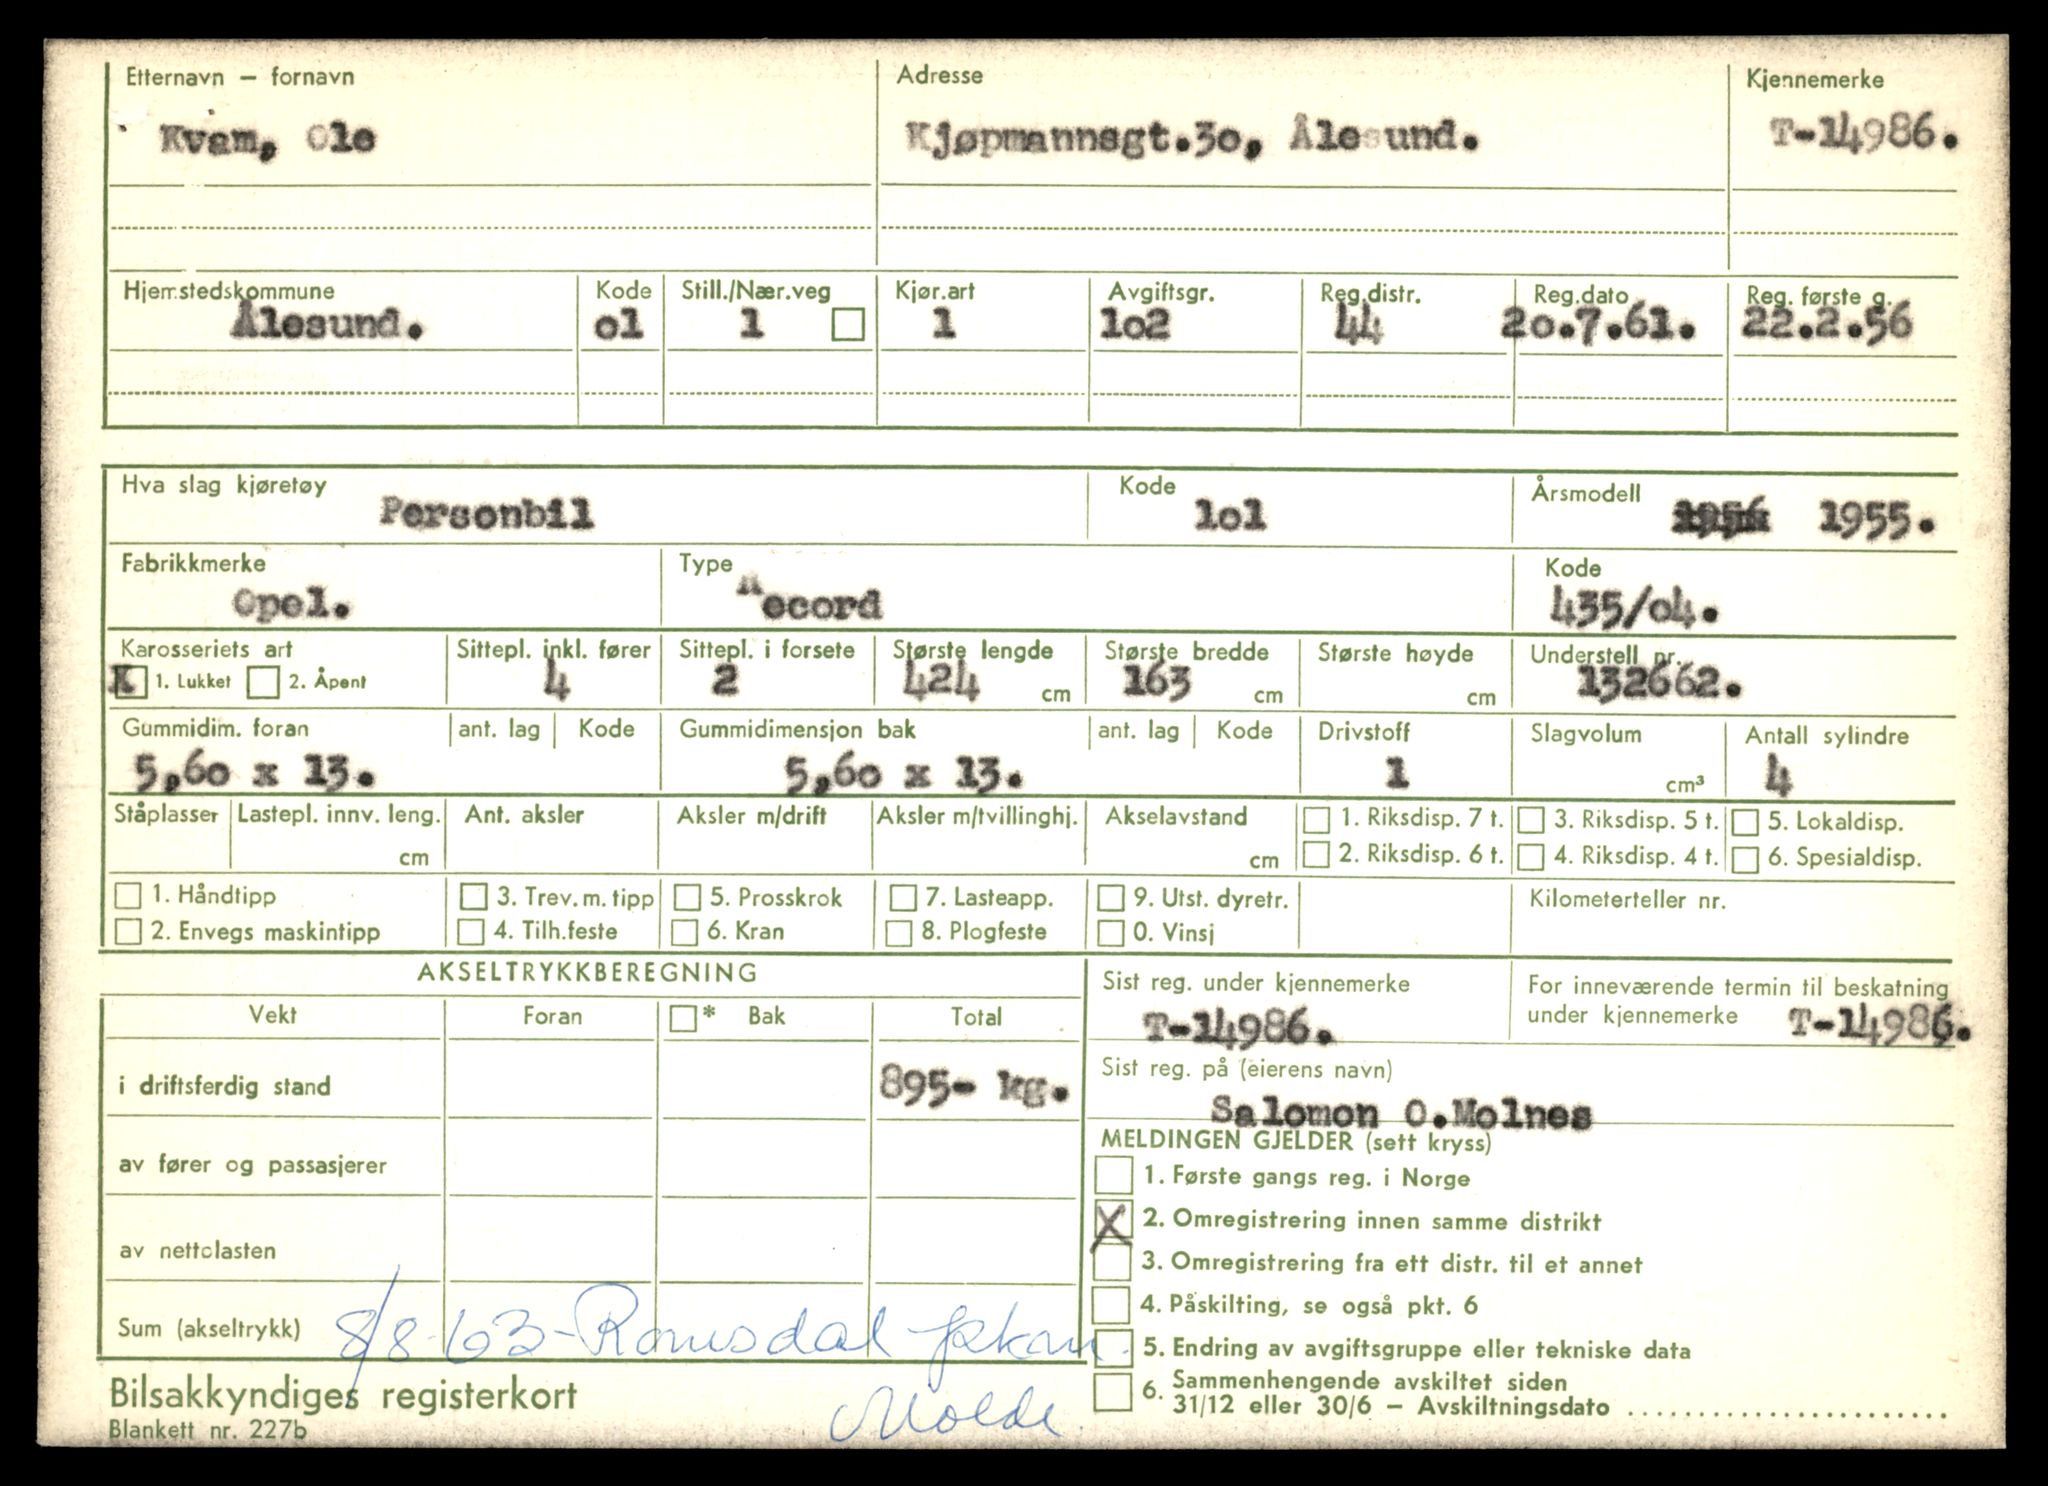 Etternavn – fornavn Adresse Kjennemerke
Kvam, Ole Kjøpmannsgt.30, Ålesund. T-14986.
Hjemstedskommune Kode Still./Nær.veg Kjør.art Avgiftsgr. Reg.distr. Reg.dato Reg. første g.
Ålesund. 01 1 1 102 44 20.7.61. 22.2.56
Hva slag kjøretøy Kode Årsmodell
Personbil 101 1956 1955.
Fabrikkmerke Type Kode
Opel. Record 435/04.
Karosseriets art Sittepl. inkl. fører Sittepl. i forsete Største lengde Største bredde Største høyde Understell nr.
X 1. Lukket 2. Åpent 4 2 424 cm 163 cm cm 132662.
Gummidim. foran ant. lag Kode Gummidimensjon bak ant. lag Kode Drivstoff Slagvolum Antall sylindre
5,60 x 13. 5,60 x 13. 1 cm³ 4
Ståplasser Lastepl. innv. leng. Ant. aksler Aksler m/drift Aksler m/tvillinghj. Akselavstand 1. Riksdisp. 7 t. 3. Riksdisp. 5 t. 5. Lokaldisp.
cm cm 2. Riksdisp. 6 t. 4. Riksdisp. 4 t. 6. Spesialdisp.
1. Håndtipp 3. Trev. m. tipp 5. Prosskrok 7. Lasteapp. 9. Utst. dyretr. Kilometerteller nr.
2. Envegs maskintipp 4. Tilh.feste 6. Kran 8. Plogfeste 0. Vinsj
AKSELTRYKKBEREGNING
Vekt Foran * Bak Total
i driftsferdig stand 895- kg.
av fører og passasjerer
av nettolasten
Sum (akseltrykk)
8/8-63-Romsdal
Molde.
Sist reg. under kjennemerke For inneværende termin til beskatning
under kjennemerke
T-14986. T-14986.
Sist reg. på (eierens navn)
Salomon O.Molnes
MELDINGEN GJELDER (sett kryss)
1. Første gangs reg. i Norge
X 2. Omregistrering innen samme distrikt
3. Omregistrering fra ett distr. til et annet
4. Påskilting, se også pkt. 6
5. Endring av avgiftsgruppe eller tekniske data
6. Sammenhengende avskiltet siden
31/12 eller 30/6 – Avskiltningsdato ........................
Bilsakkyndiges registerkort
Blankett nr. 227b